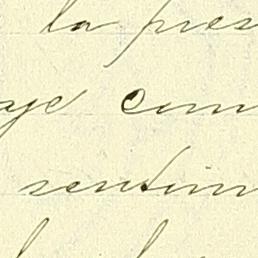 la pres
aje com
sentim